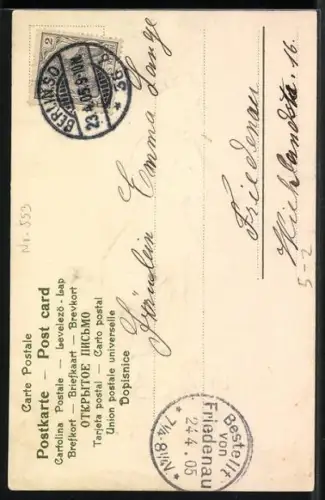 Carte Postale
Postkarte — Post card
Cartolina Postale — Levelező-Lap
Brefkort — Briefkaart — Brevkort
ОТКРЫТОЕ ПИСЬМО
Tarjeta postal — Carto postal
Union postale universelle
Dopisnice
2
BERLIN S.O.
23.4.05
* 36
Fräulein Emma Lange
Friedenau
16.
Bestellt
von
Friedenau
24.4.05
* 7¼-8¼V. *
Nr. 553
5-2